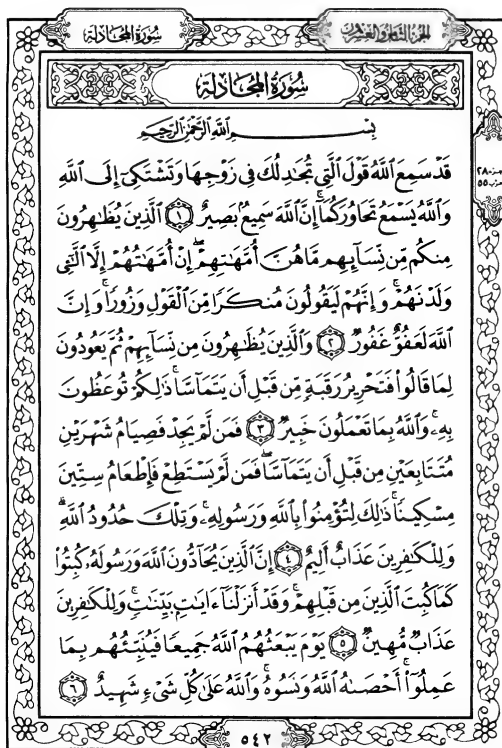 سُورَةُ المُجَادلَة
الجُزْءُ الثَّامِنُ وَالعِشْرُونَ
سُورَةُ المُجَادلَة
بِسْمِ اللَّهِ الرَّحْمَٰنِ الرَّحِيمِ
قَدْ سَمِعَ ٱللَّهُ قَوْلَ ٱلَّتِي تُجَٰدِلُكَ فِي زَوْجِهَا وَتَشْتَكِيٓ إِلَى ٱللَّهِ
وَٱللَّهُ يَسْمَعُ تَحَاوُرَكُمَآۚ إِنَّ ٱللَّهَ سَمِيعٌۢ بَصِيرٌ ١ ٱلَّذِينَ يُظَٰهِرُونَ
مِنكُم مِّن نِّسَآئِهِم مَّا هُنَّ أُمَّهَٰتِهِمْۖ إِنْ أُمَّهَٰتُهُمْ إِلَّا ٱلَّٰٓـِٔي
وَلَدْنَهُمْۚ وَإِنَّهُمْ لَيَقُولُونَ مُنكَرًا مِّنَ ٱلْقَوْلِ وَزُورًاۚ وَإِنَّ
ٱللَّهَ لَعَفُوٌّ غَفُورٌ ٢ وَٱلَّذِينَ يُظَٰهِرُونَ مِن نِّسَآئِهِمْ ثُمَّ يَعُودُونَ
لِمَا قَالُوا۟ فَتَحْرِيرُ رَقَبَةٍ مِّن قَبْلِ أَن يَتَمَآسَّاۚ ذَٰلِكُمْ تُوعَظُونَ
بِهِۦۚ وَٱللَّهُ بِمَا تَعْمَلُونَ خَبِيرٌ ٣ فَمَن لَّمْ يَجِدْ فَصِيَامُ شَهْرَيْنِ
مُتَتَابِعَيْنِ مِن قَبْلِ أَن يَتَمَآسَّاۖ فَمَن لَّمْ يَسْتَطِعْ فَإِطْعَامُ سِتِّينَ
مِسْكِينًاۚ ذَٰلِكَ لِتُؤْمِنُوا۟ بِٱللَّهِ وَرَسُولِهِۦۚ وَتِلْكَ حُدُودُ ٱللَّهِۗ
وَلِلْكَٰفِرِينَ عَذَابٌ أَلِيمٌ ٤ إِنَّ ٱلَّذِينَ يُحَآدُّونَ ٱللَّهَ وَرَسُولَهُۥ كُبِتُوا۟
كَمَا كُبِتَ ٱلَّذِينَ مِن قَبْلِهِمْۚ وَقَدْ أَنزَلْنَآ ءَايَٰتٍۭ بَيِّنَٰتٍۚ وَلِلْكَٰفِرِينَ
عَذَابٌ مُّهِينٌ ٥ يَوْمَ يَبْعَثُهُمُ ٱللَّهُ جَمِيعًا فَيُنَبِّئُهُم بِمَا
عَمِلُوٓا۟ۚ أَحْصَىٰهُ ٱللَّهُ وَنَسُوهُۚ وَٱللَّهُ عَلَىٰ كُلِّ شَىْءٍ شَهِيدٌ ٦
٢٨
٥٥
٥٤٢